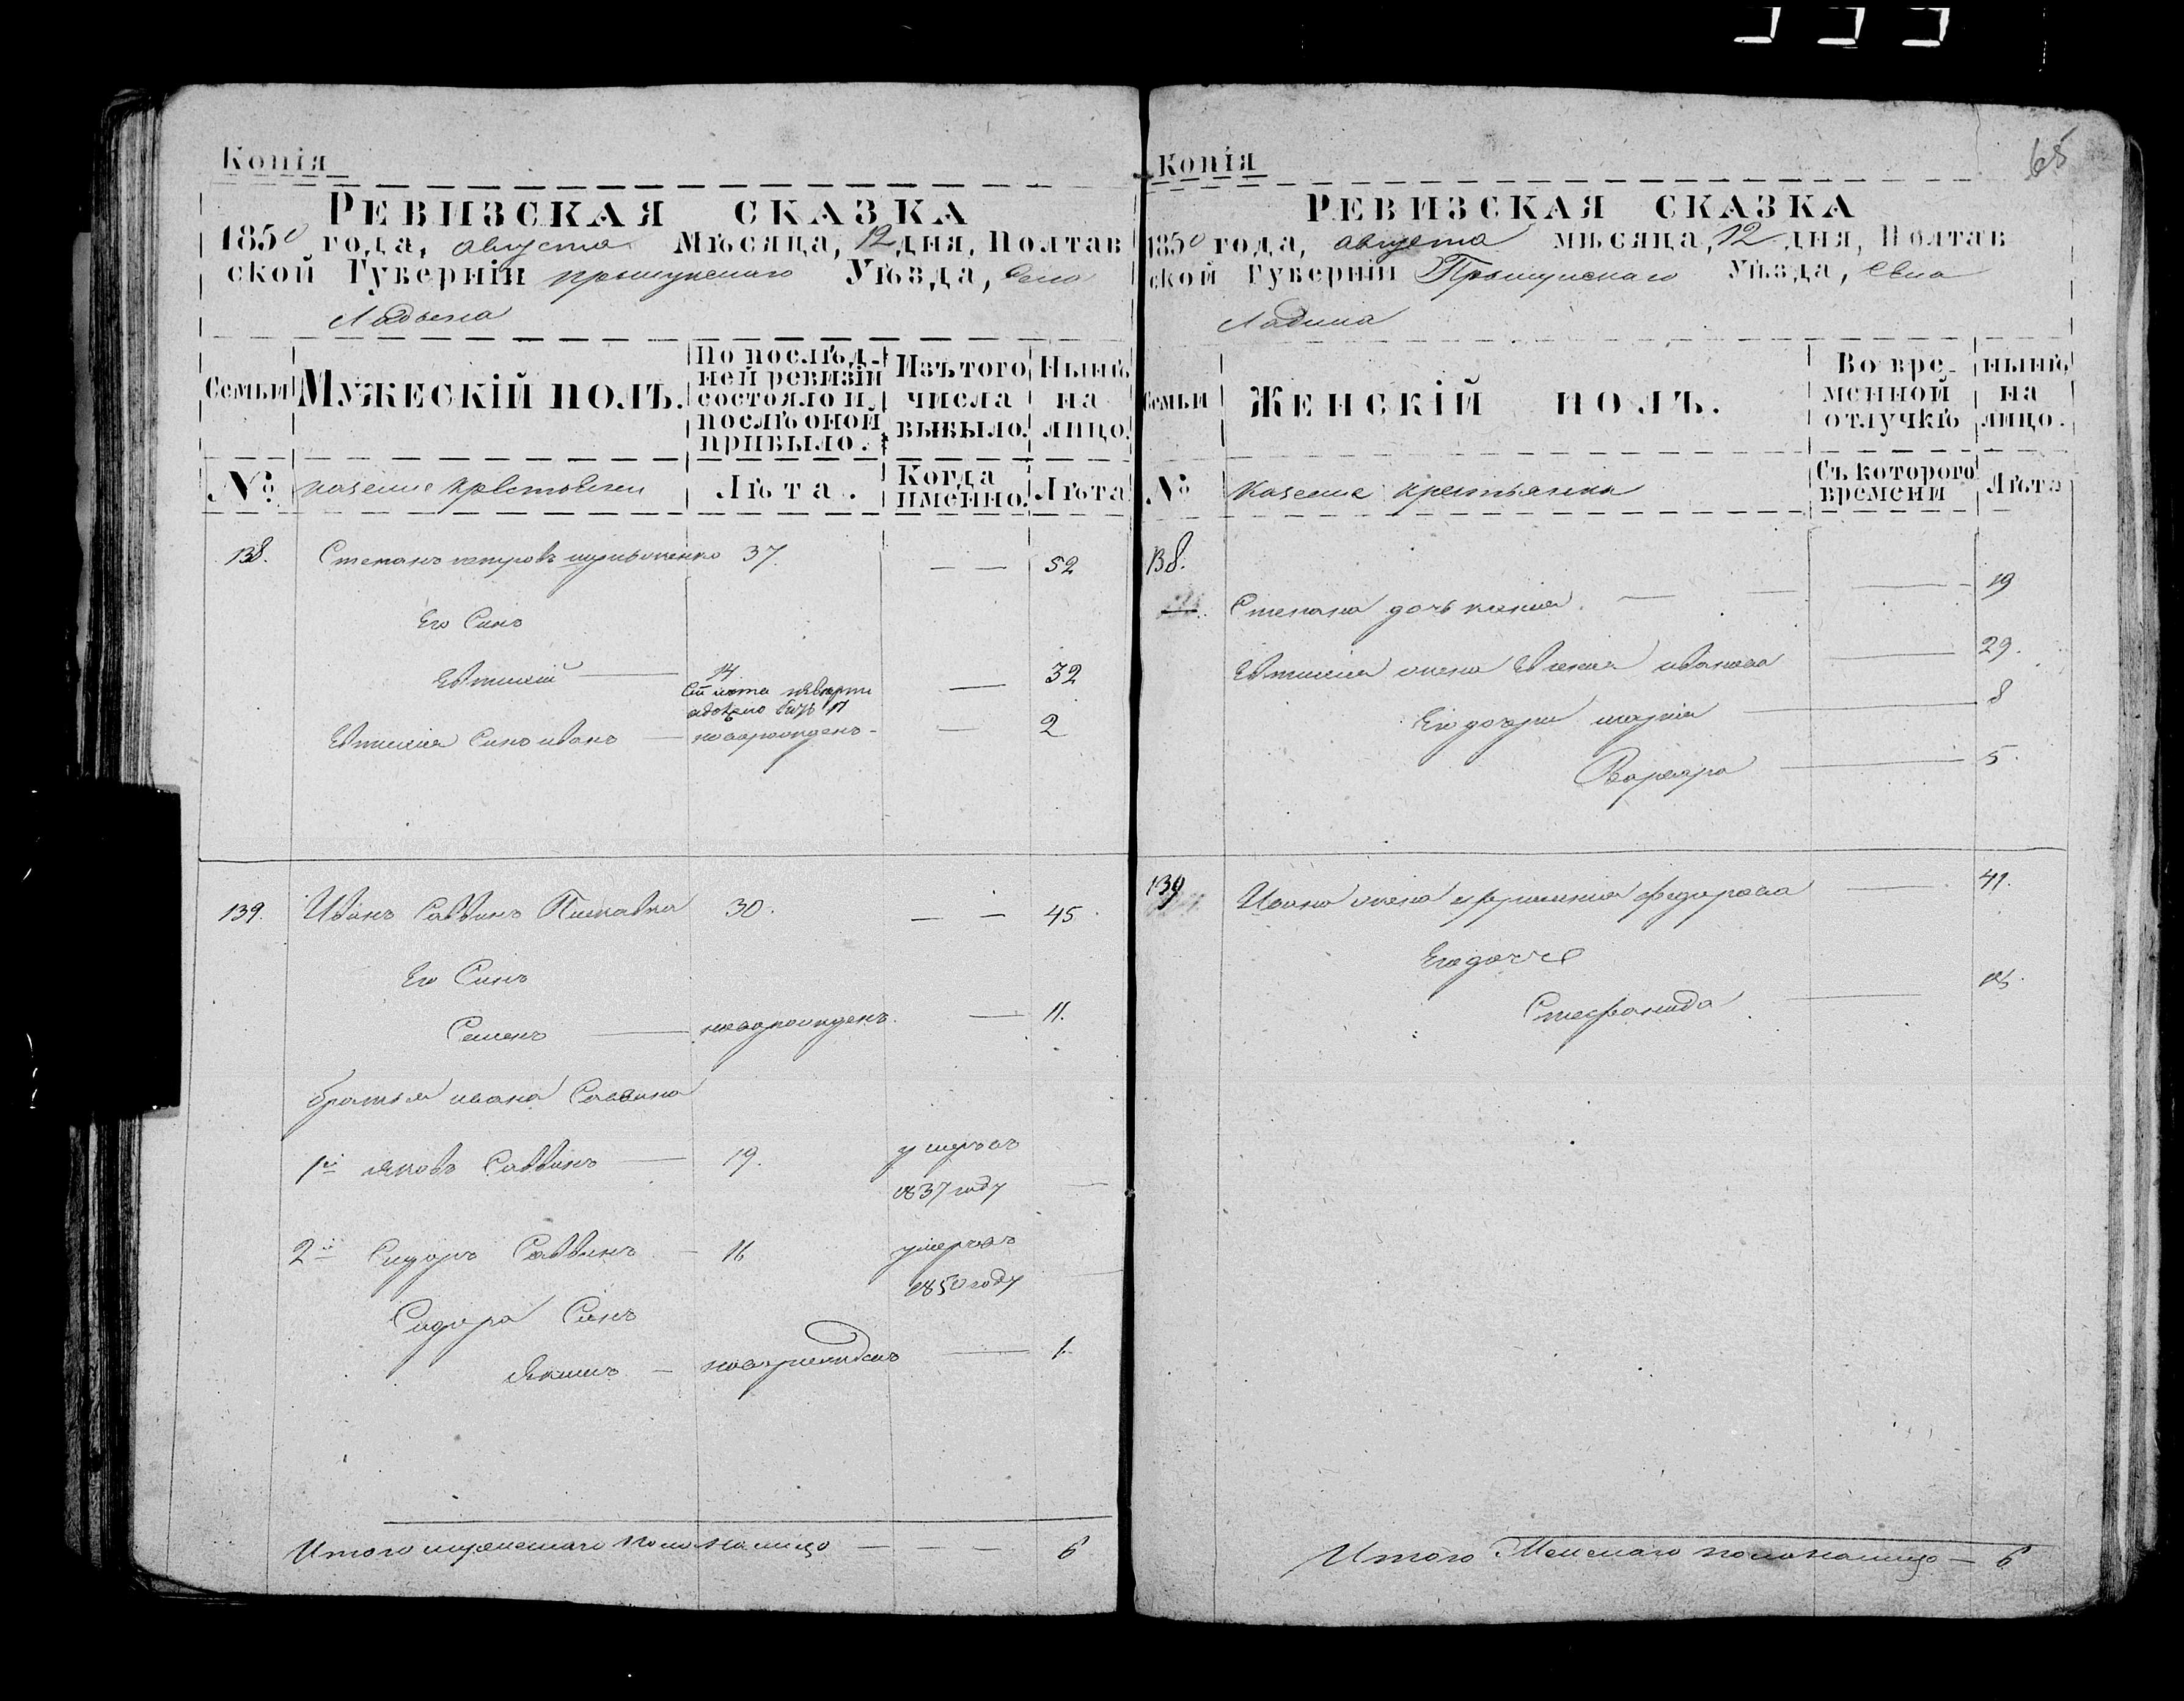 Копія
РЕВИЗСКАЯ СКАЗКА
1850 года, августа Мѣсяца, 12 дня, Полтав
ской Губерніи прилукскаго Уѣзда, Села
Ладына
Семьи
МУЖЕСКІЙ ПОЛЪ.
По послѣд-
ней ревизіи
состояло и
послѣ оной
прибыло.
Изъ того
числа
выбыло.
Нынѣ
на
лицо.
№
казенные крестьяне
Лѣта.
Когда
именно.
Лѣта
138. Степанъ петровъ 37. — — 52
Его Синъ
Евтихій — 14 — 32
Евтихія Синъ иванъ — новорожденъ — — 2
139. Иванъ Саввинъ 30. — — 45
Его Синъ
Семенъ — новорожденъ. — 11.
братья ивана Саввина
1й яковъ Саввинъ — 19. умеръ въ
1837 году —
2й Сидоръ Саввинъ — 16 умеръ въ
1850 году —
Сидора Синъ
Якимъ — новорожденъ — 1.
Итого мужескаго пола на лицо — — — 6
Копія
65
РЕВИЗСКАЯ СКАЗКА
1850 года, августа мѣсяца, 12 дня, Полтав
ской Губерніи Прилукскаго Уѣзда, Села
Ладина
Семьи
ЖЕНСКІЙ ПОЛЪ.
Во вре-
менной
отлучкѣ
нынѣ
на
лицо.
№
казенные крестьянки
Съ которого
времени
Лѣта
138.
Степана дочь — — — 19
Евтихія жена Евгенія иванова — 29.
Его дочери марія — 8
Варвара — 5.
139 Ивана жена ефросинія федорова — 41.
Его дочь
Стефанида — 18.
Итого Женскаго пола на лицо — 6